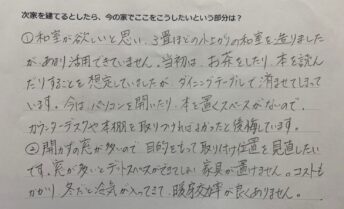 次家を建てるとしたら、今の家でここをこうしたいという部分は?
①和室が欲しいと思い、3畳ほどの小上がりの和室を造りました
が、あまり活用できていません。当初は、お茶をしたり、本を読ん
だりすることを想定していましたが、ダイニングテーブルで済ませてしまって
います。今は、パソコンを開いたり、本を置くスペースがないので、
カウンターデスクや本棚を取りつければよかったと後悔しています。
②開かずの窓が多いので目的をもって取り付け位置を見直したい
です。窓が多いとデットスペースができてしまい家具が置けません。コストも
かかり、冬だと冷気が入ってきて、暖房効率が良くありません。